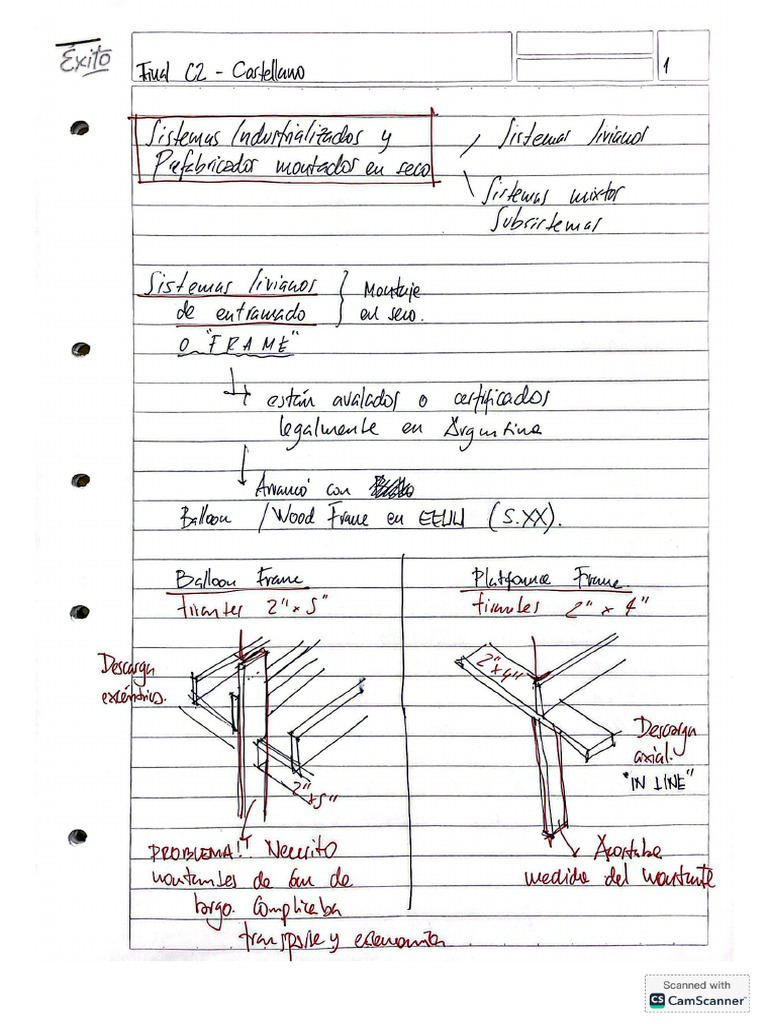 Éxito
Final C2 - Castellano
1
Sistemas Industrializados y
Prefabricados montados en seco
Sistemas livianos
Sistemas mixtos
Subsistemas
Sistemas livianos
de entramado
o "FRAME"
Montaje
en seco.
están avalados o certificados
legalmente en Argentina
Arrancó con
Balloon / Wood Frame en EEUU (S.XX).
Balloon Frame
tirantes 2" x 5"
Descarga
excéntrica.
2"
x5"
PROBLEMA!! Necesito
montantes de 6m de
largo. Complicaba
transporte y economía
Platforme Frame.
tirantes 2" x 4"
2"
x4"
Descarga
axial.
"IN LINE"
Acortaba
medida del montante
Scanned with
CS CamScanner